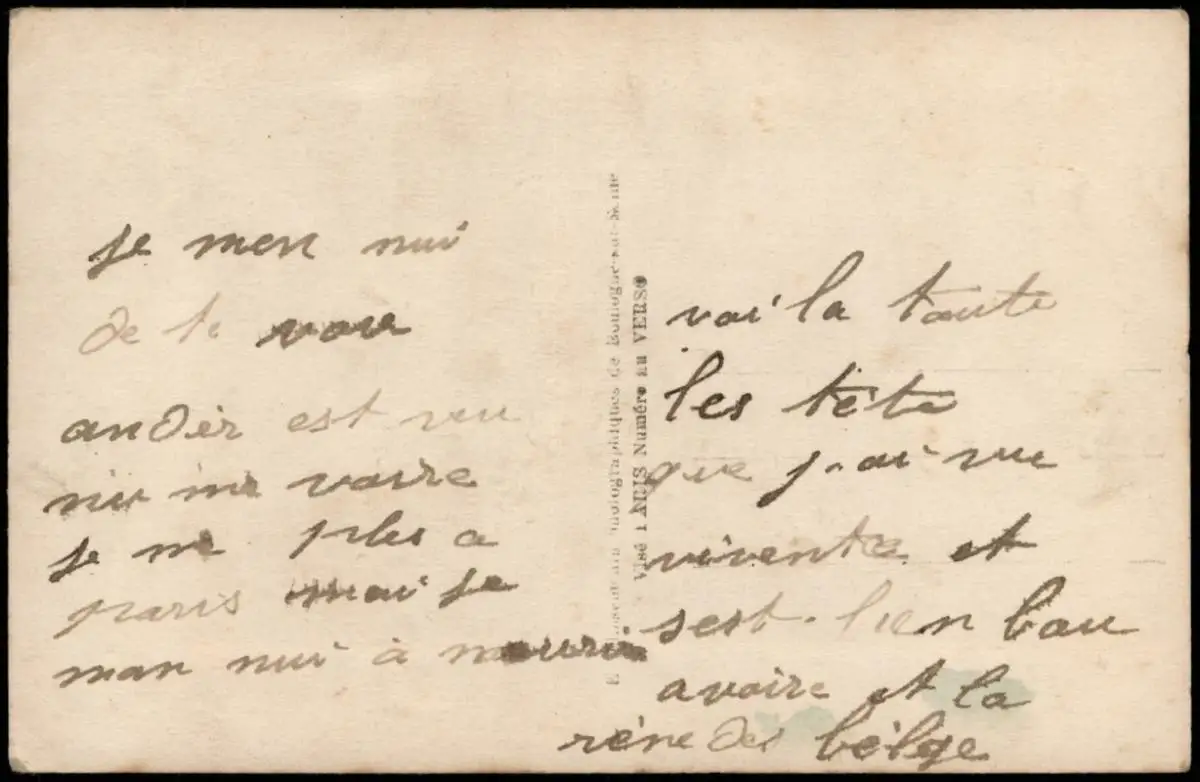 je men nui
de te voir
andèr est veu
niu me voire
je me ples a
paris mai je
man nui à mourir
Photographiques de Boulogne-sur-Seine
Visé PARIS Numéro au VERSO
voi la toute
les tète
que j.ai vu
vivente et
sest. bien bau
avoire et la
rène des bèlge